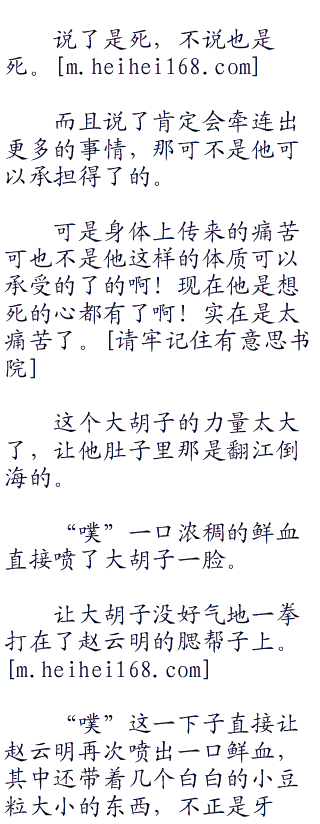 说了是死，不说也是
死。[m.heihei168.com]
而且说了肯定会牵连出
更多的事情，那可不是他可
以承担得了的。
可是身体上传来的痛苦
可也不是他这样的体质可以
承受的了的啊！现在他是想
死的心都有了啊！实在是太
痛苦了。[请牢记住有意思书
院]
这个大胡子的力量太大
了，让他肚子里那是翻江倒
海的。
“噗”一口浓稠的鲜血
直接喷了大胡子一脸。
让大胡子没好气地一拳
打在了赵云明的腮帮子上。
[m.heihei168.com]
“噗”这一下子直接让
赵云明再次喷出一口鲜血，
其中还带着几个白白的小豆
粒大小的东西，不正是牙